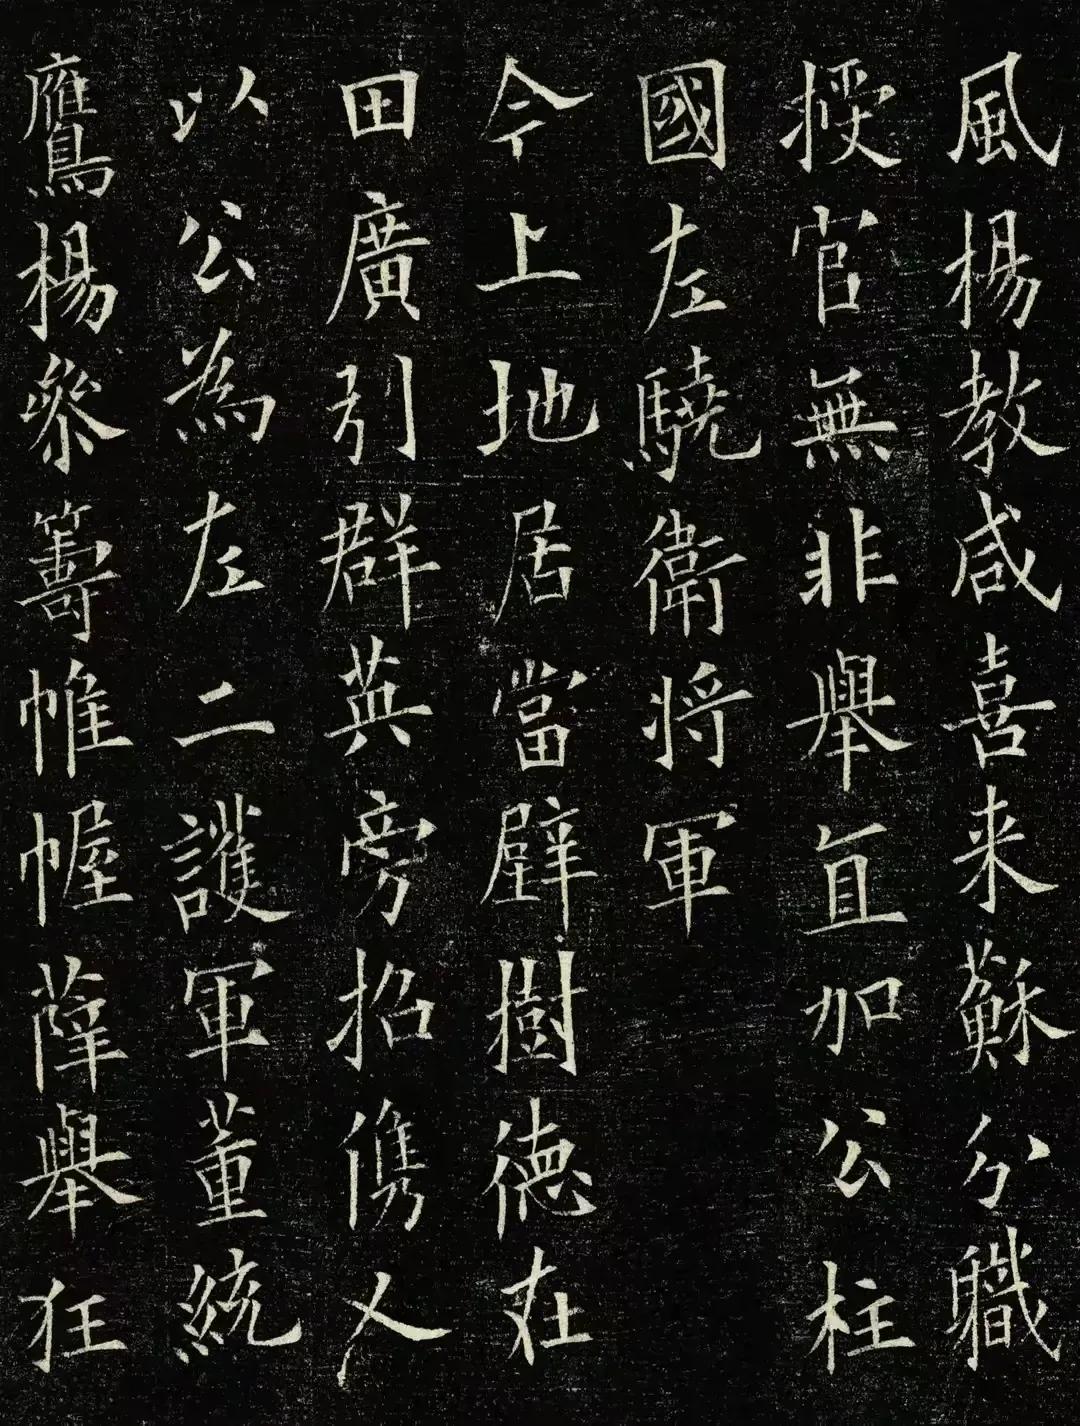 風楊教咸喜来蘇分職
授官無非舉直加公柱
國左驍衛将軍
今上地居當璧樹德在
田廣引群英旁招儁人
以公為左二護軍董統
鷹楊叅籌帷幄薩舉狂